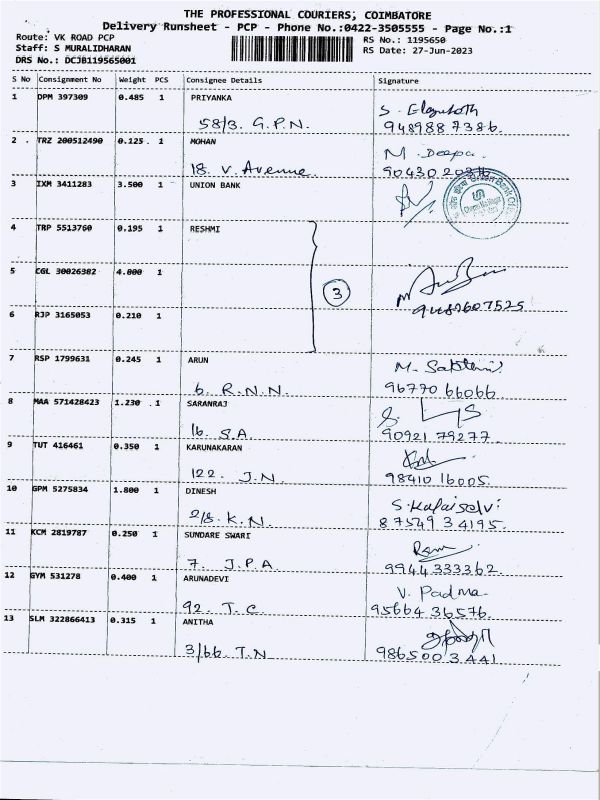 THE PROFESSIONAL COURIERS, COIMBATORE
Delivery Runsheet - PCP - Phone No.:0422-3505555 - Page No.:1
Route: VK ROAD PCP
RS No.: 1195650
Staff: S MURALIDHARAN
RS Date: 27-Jun-2023
DRS No.: DCJB119565001
S No Consignment No Weight PCS Consignee Details Signature
1 DPM 397309 0.485 1 PRIYANKA
58/3. G.P.N. 948988 7386.
2 . TRZ 200512490 0.125 . 1 MOHAN M. Deepa
18. V. Avenue. 90430
3 IXM 3411283 3.500 1 UNION BANK
4 TRP 5513760 0.195 1 RESHMI
5 CGL 30026382 4.000 1
3
6 RJP 3165053 0.210 1
7 RSP 1799631 0.245 1 ARUN
6. R.N.N. 96770 66066
8 MAA 571428423 1.230 . 1 SARANRAJ
16. S.A. 90921 79277
9 TUT 416461 0.350 1 KARUNAKARAN
122. J.N. 98410 16005.
10 GPM 5275834 1.800 1 DINESH S. Kalaiselvi
2/8. K.N. 87549 34195.
11 KCM 2819787 0.250 1 SUNDARE SWARI
7. J.P.A 9944333362.
12 GYM 531278 0.400 1 ARUNADEVI V. Padma
92. T.C. 95664 36576.
13 SLM 322866413 0.315 1 ANITHA
3/66. T.N 986500 3441